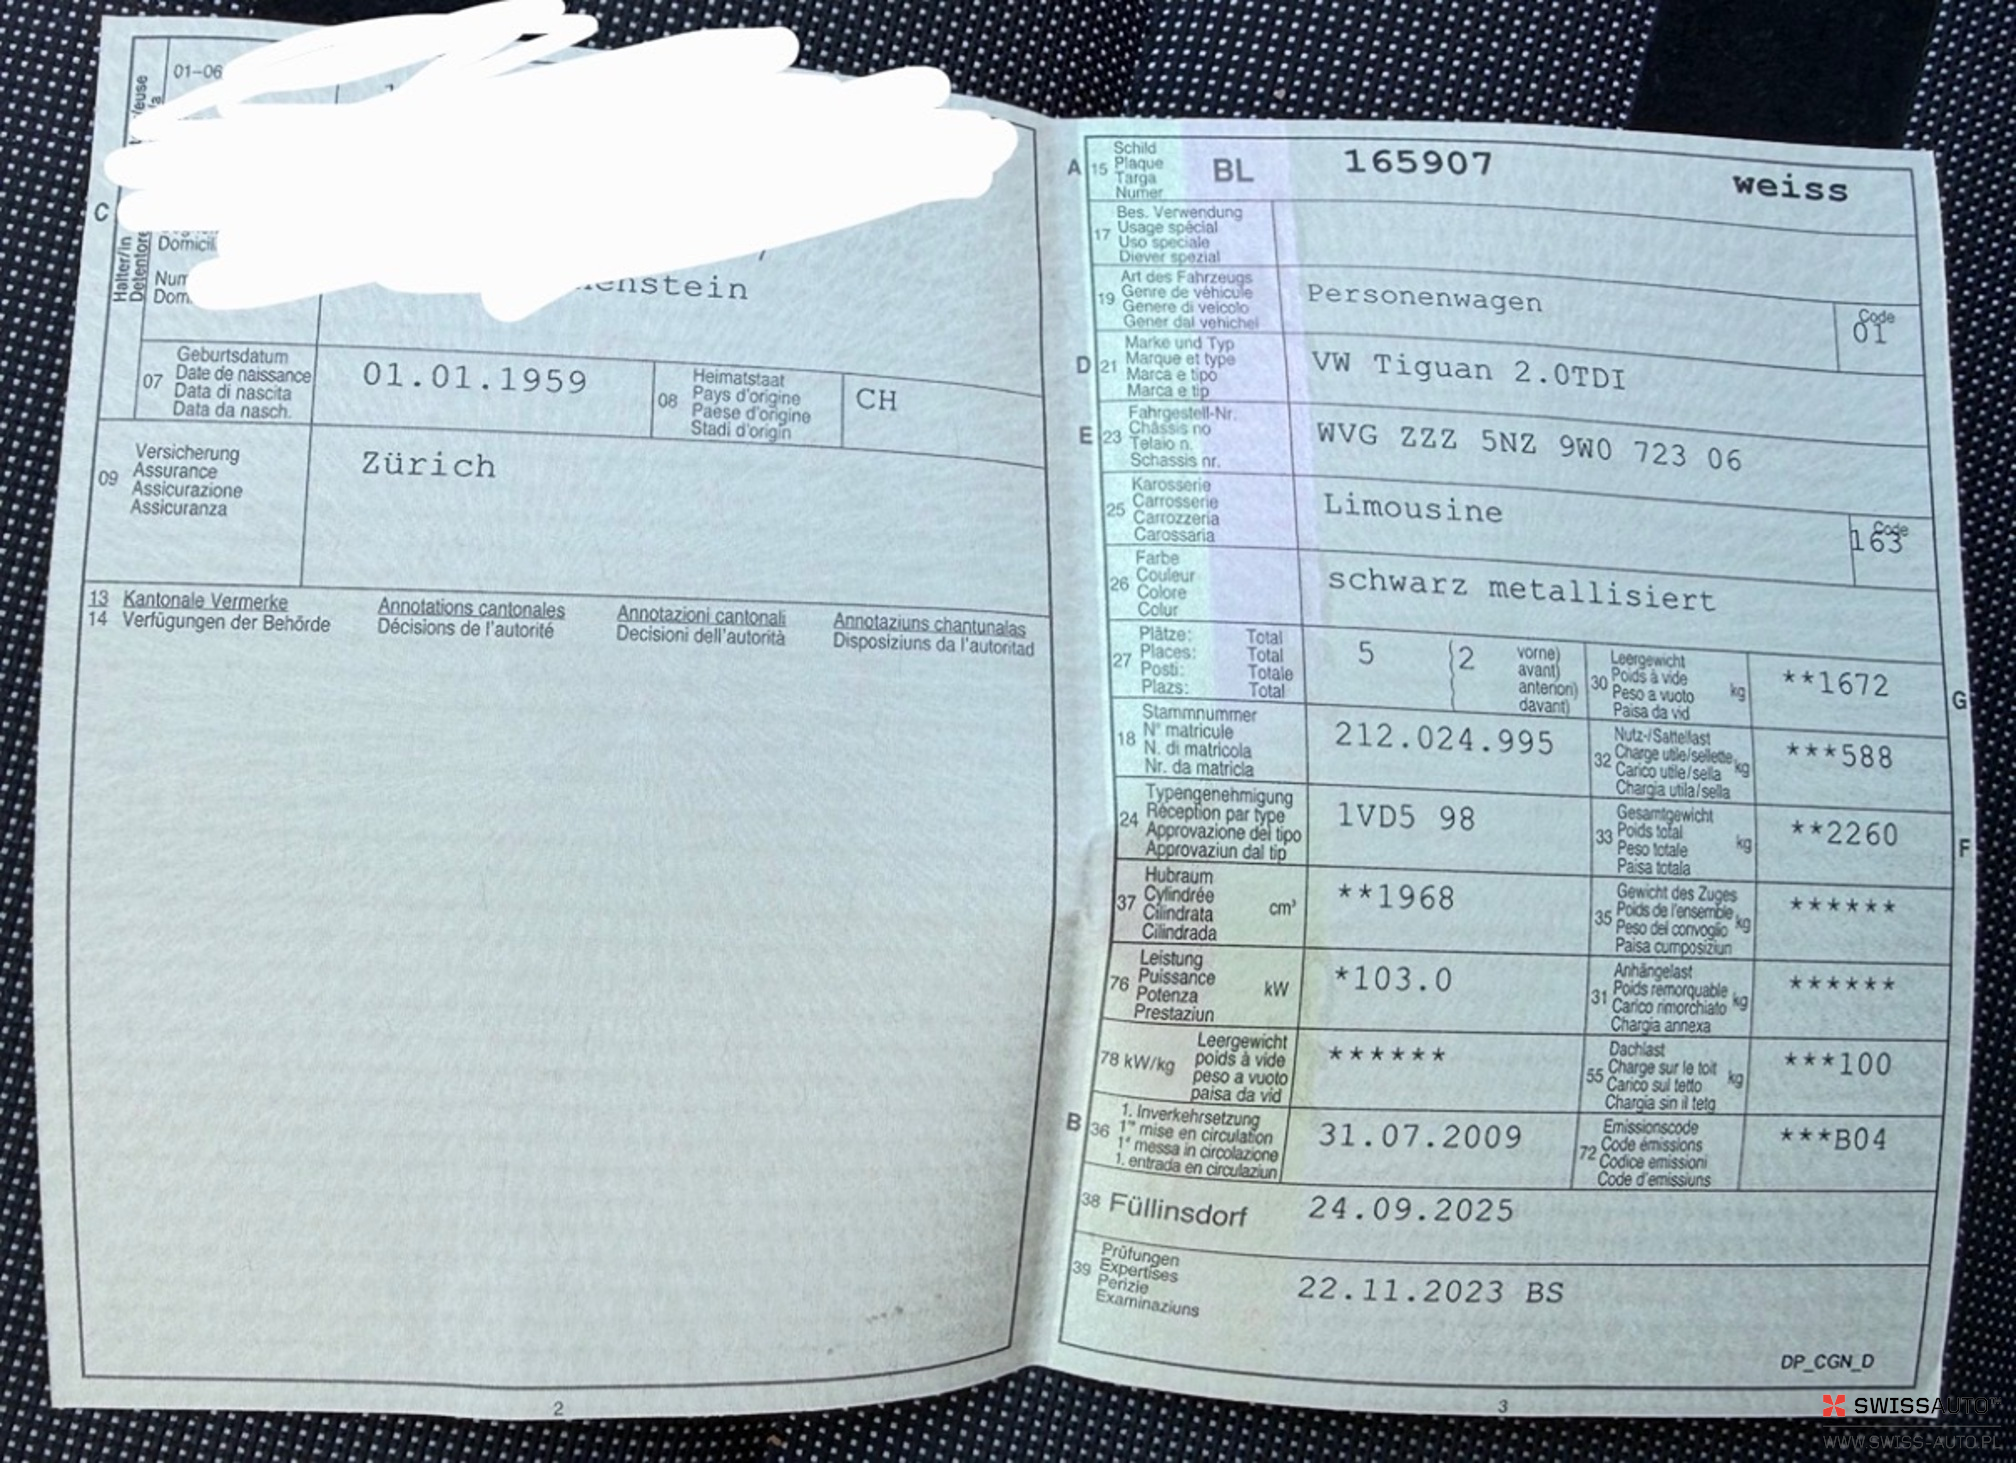 01-06
C
Halter/in
Domicil
menstein
07
Geburtsdatum
Date de naissance
Data di nascita
Data da nasch.
01.01.1959
08
Heimatstaat
Pays d'origine
Paese d'origine
Stadi d'origin
CH
09
Versicherung
Assurance
Assicurazione
Assicuranza
Zürich
13 Kantonale Vermerke Annotations cantonales Annotazioni cantonali Annotaziuns chantunalas
14 Verfügungen der Behörde Décisions de l'autorité Decisioni dell'autorità Disposiziuns da l'autoritad
2
A 15
Schild
Plaque
Targa
Numer
BL 165907 weiss
17
Bes. Verwendung
Usage spécial
Uso speciale
Diever spezial
19
Art des Fahrzeugs
Genre de véhicule
Genere di veicolo
Gener dal vehichel
Personenwagen
Code
01
D 21
Marke und Typ
Marque et type
Marca e tipo
Marca e tip
VW Tiguan 2.0TDI
E 23
Fahrgestell-Nr.
Châssis no
Telaio n.
Schassis nr.
WVG ZZZ 5NZ 9W0 723 06
25
Karosserie
Carrosserie
Carrozzeria
Carossaria
Limousine
Code
163
26
Farbe
Couleur
Colore
Colur
schwarz metallisiert
27
Plätze: Total
Places: Total
Posti: Totale
Plazs: Total
5 (2
vorne)
avant)
anteriori)
davant)
30
Leergewicht
Poids à vide
Peso a vuoto
Paisa da vid
kg
**1672
G
18
Stammnummer
N° matricule
N. di matricola
Nr. da matricla
212.024.995
32
Nutz-/Sattellast
Charge utile/sellette
Carico utile/sella
Chargia utila/sella
kg
***588
24
Typengenehmigung
Réception par type
Approvazione del tipo
Approvaziun dal tip
1VD5 98
33
Gesamtgewicht
Poids total
Peso totale
Paisa totala
kg
**2260
F
37
Hubraum
Cylindrée
Cilindrata
Cilindrada
cm³
**1968
35
Gewicht des Zuges
Poids de l'ensemble
Peso del convoglio
Paisa cumposiziun
kg
******
76
Leistung
Puissance
Potenza
Prestaziun
kW
*103.0
31
Anhängelast
Poids remorquable
Carico rimorchiato
Chargia annexa
kg
******
78 kW/kg
Leergewicht
poids à vide
peso a vuoto
paisa da vid
******
55
Dachlast
Charge sur le toit
Carico sul tetto
Chargia sin il tetg
kg
***100
B 36
1. Inverkehrsetzung
1re mise en circulation
1a messa in circolazione
1. entrada en circulaziun
31.07.2009
72
Emissionscode
Code émissions
Codice emissioni
Code d'emissiuns
***B04
38 Füllinsdorf 24.09.2025
39
Prüfungen
Expertises
Perizie
Examinaziuns
22.11.2023 BS
DP_CGN_D
3
SWISSAUTO
WWW.SWISS-AUTO.PL